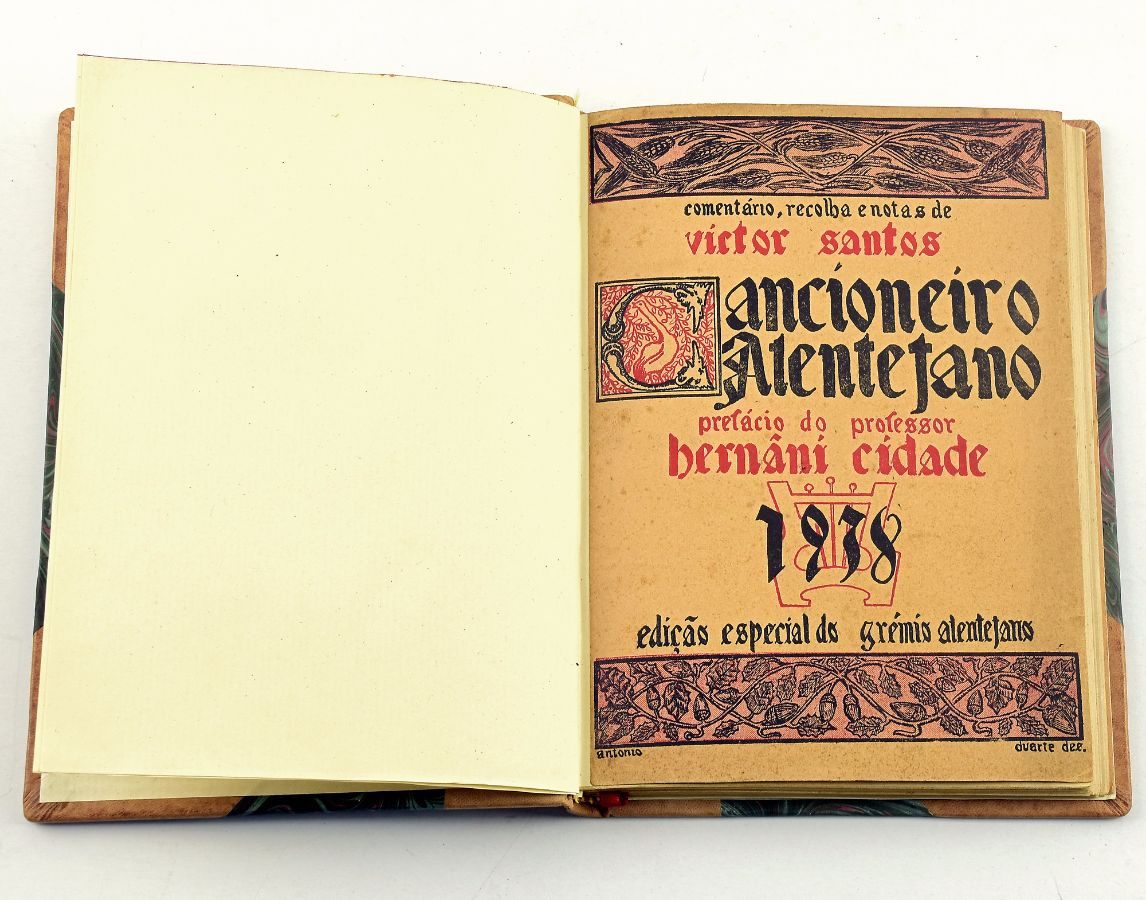 comentário, recolha e notas de
victor santos
Cancioneiro
Alentejano
prefácio do professor
hernâni cidade
1938
edição especial do grémio alentejano
antonio duarte dec.